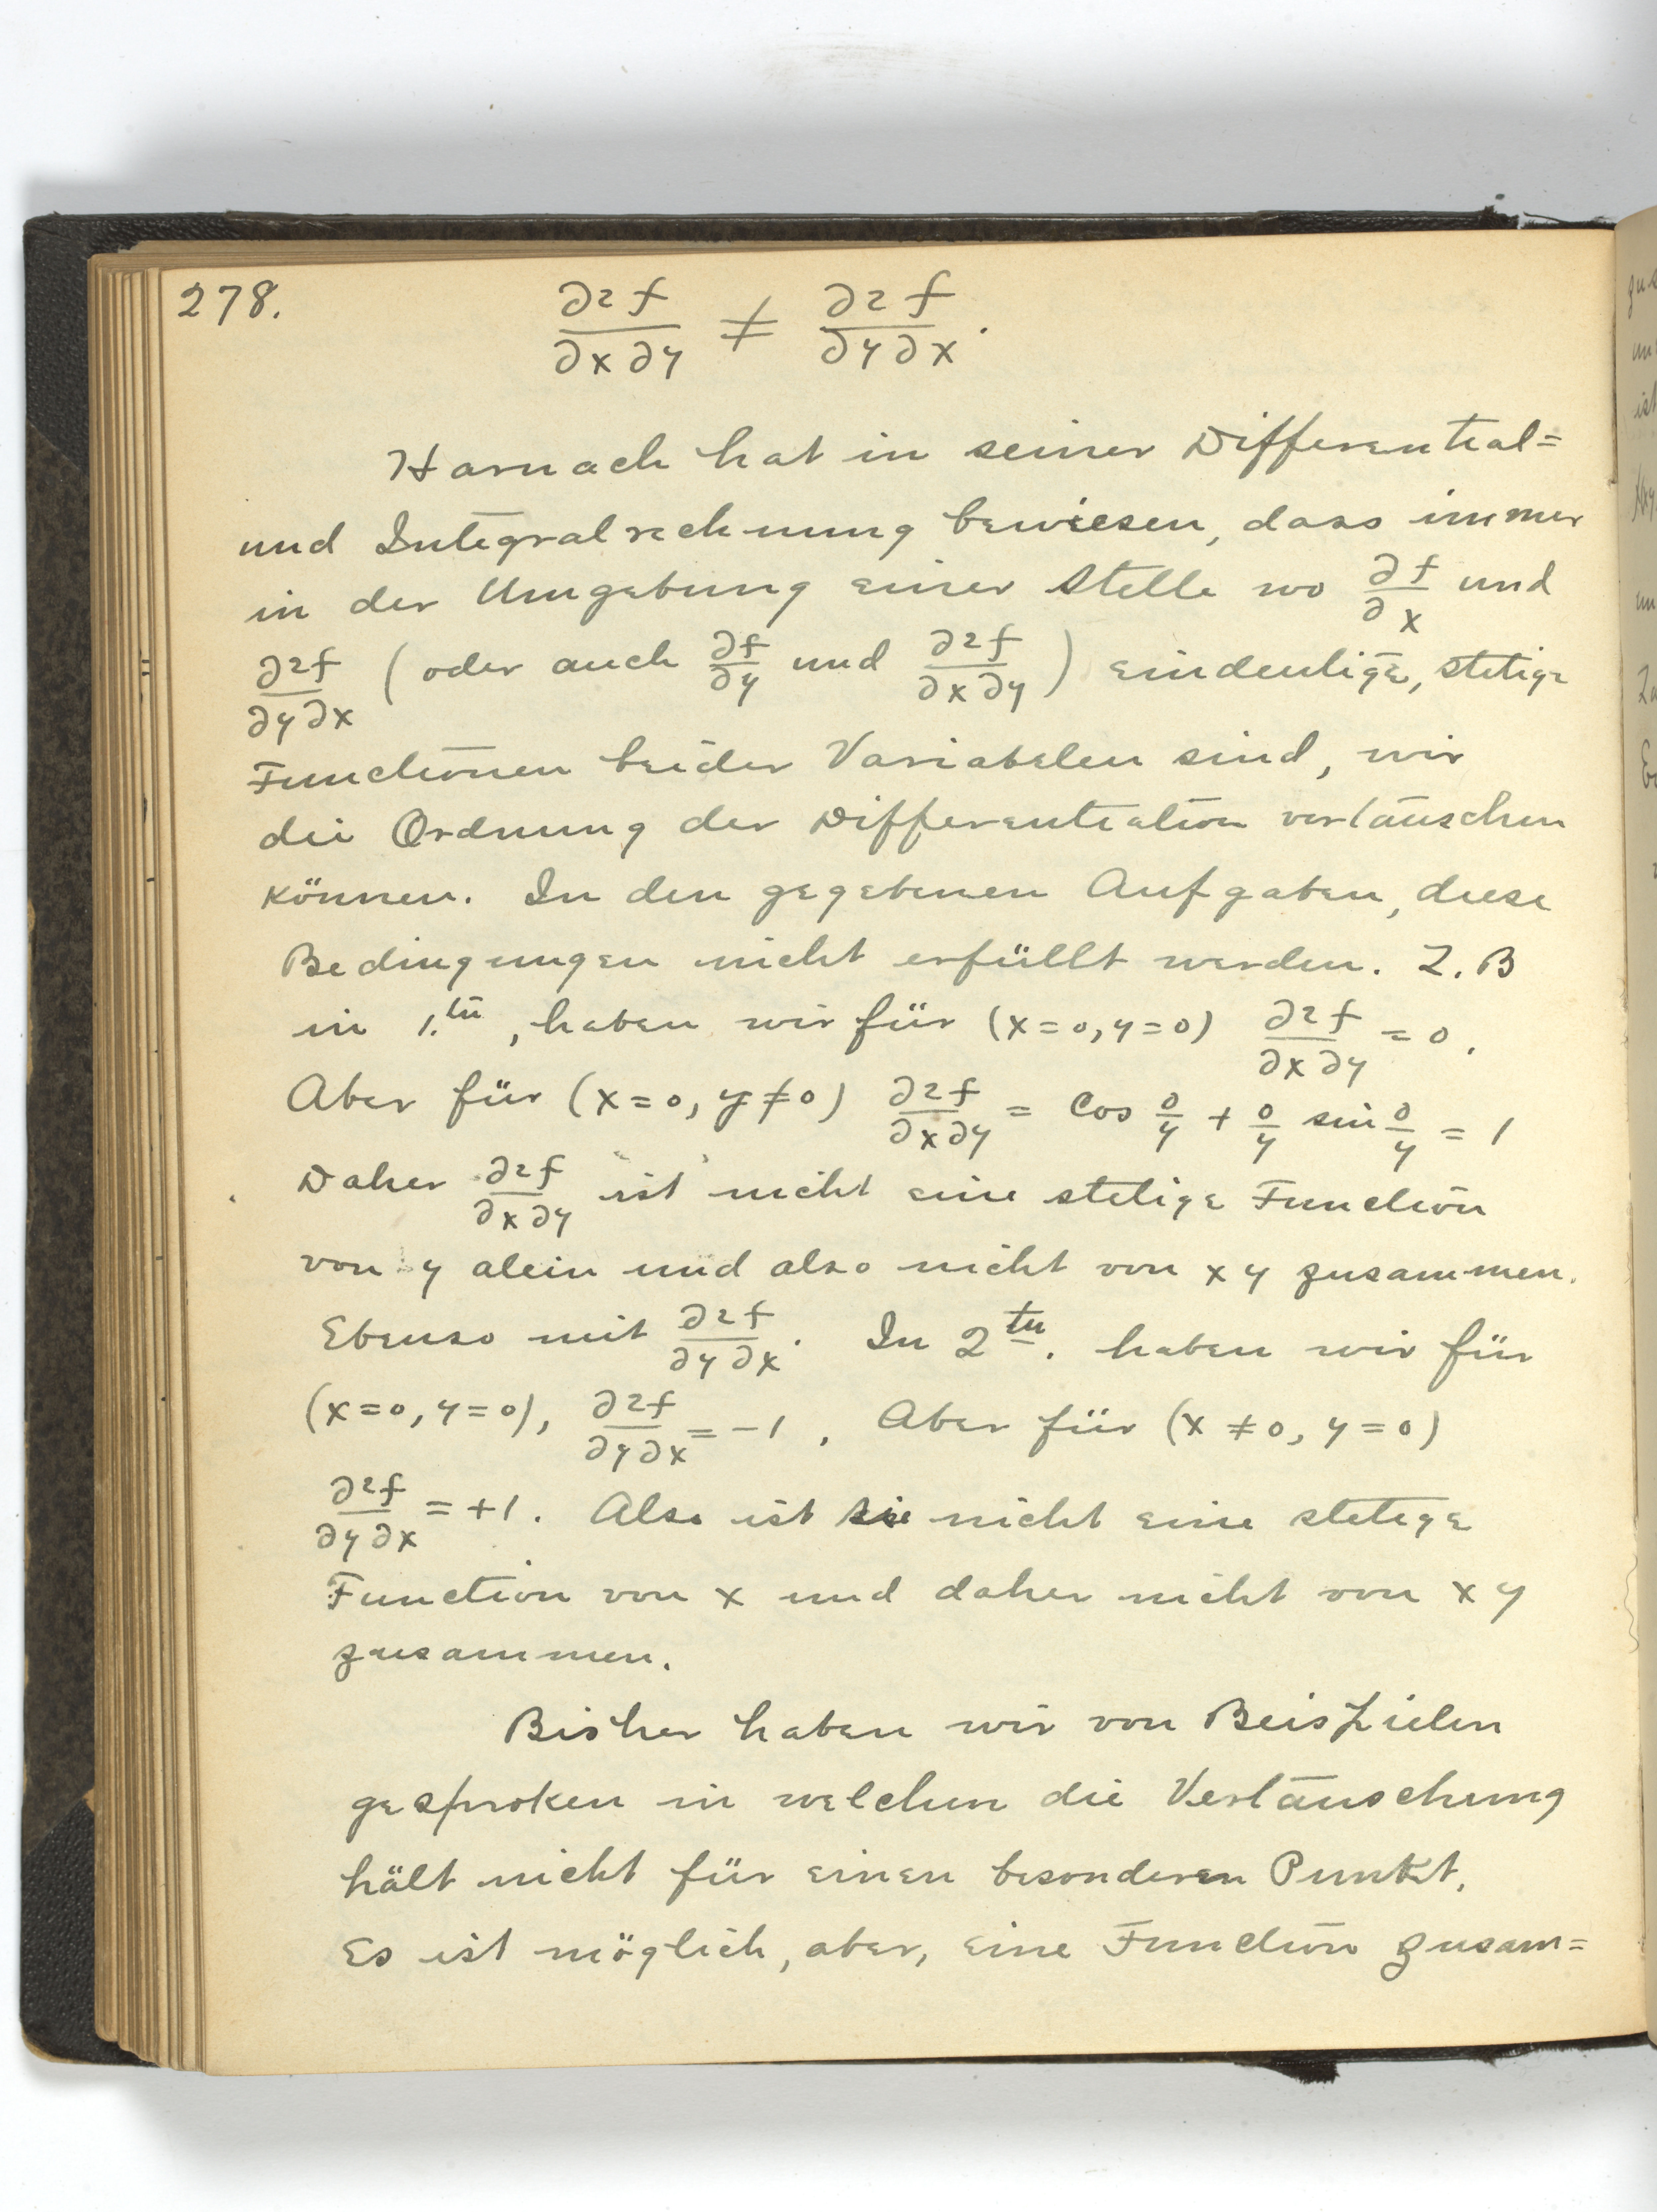 278. ∂²f/∂x∂y ≠ ∂²f/∂y∂x.
Harnach hat in seiner Differential=
und Integralrechnung bewiesen, dass immer
in der Umgebung einer Stelle wo ∂f/∂x und
∂²f/∂y∂x (oder auch ∂f/∂y und ∂²f/∂x∂y) eindeutige, stetige
Functionen beider Variabelen sind, wir
die Ordnung der Differentiation vertauschen
können. In den gegebenen Aufgaben, diese
Bedingungen nicht erfüllt werden. Z.B
in 1.ten, haben wir für (x=0, y=0) ∂²f/∂x∂y = 0.
Aber für (x=0, y≠0) ∂²f/∂x∂y = Cos 0/y + 0/y sin 0/y = 1
Daher ∂²f/∂x∂y ist nicht eine stetige Function
von y alein und also nicht von xy zusammen.
Ebenso mit ∂²f/∂y∂x. In 2ten. haben wir für
(x=0, y=0), ∂²f/∂y∂x = -1. Aber für (x≠0, y=0)
∂²f/∂y∂x = +1. Also ist sie nicht eine stetige
Function von x und daher nicht von xy
zusammen.
Bisher haben wir von Beispielen
gesproken in welchen die Vertauschung
hält nicht für einen besonderen Punkt.
Es ist möglich, aber, eine Function zusam=